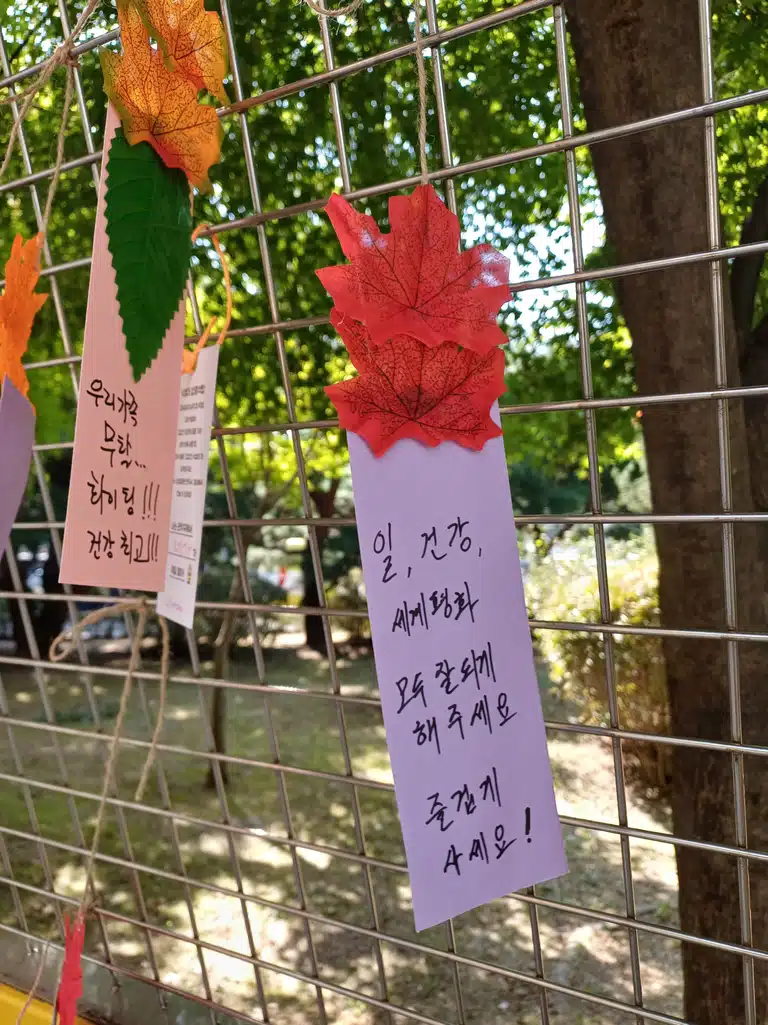 우리가족
무탈...
화이팅!!!
건강 최고!!!
일, 건강,
세계평화
모두 잘 되게
해 주세요
즐겁게
사세요!